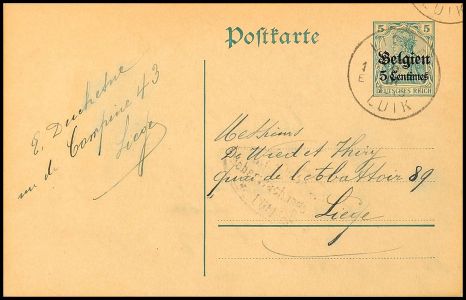 Postkarte
5 5
Belgien
5 Centimes
DEUTSCHES REICH
LUIK
1
E
LUIK
E. Duchesne
rue de Campine 43
Liege
Messieurs
De Wied et Thiry
quai de l'abattoir 89
Liege